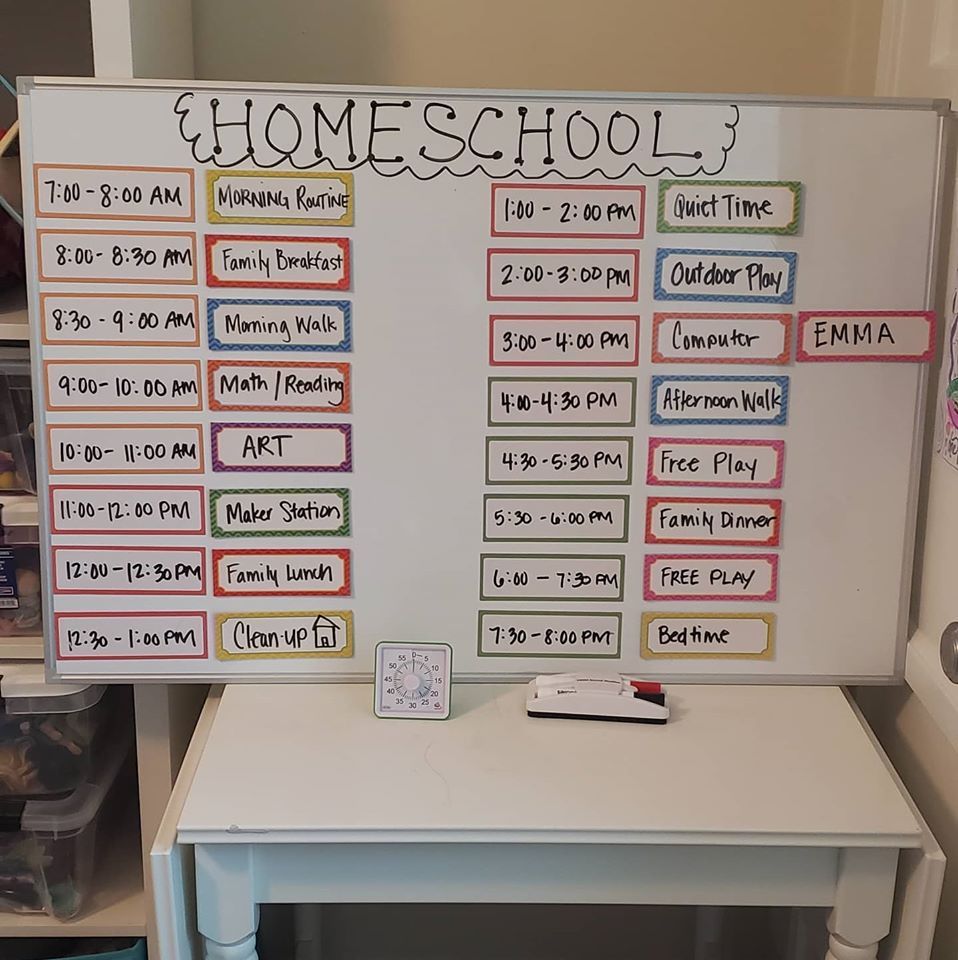 HOMESCHOOL
7:00 - 8:00 AM MORNING ROUTINE
8:00 - 8:30 AM Family Breakfast
8:30 - 9:00 AM Morning Walk
9:00 - 10:00 AM Math / Reading
10:00 - 11:00 AM ART
11:00 - 12:00 PM Maker Station
12:00 - 12:30 PM Family Lunch
12:30 - 1:00 PM Clean-up
1:00 - 2:00 PM Quiet Time
2:00 - 3:00 PM Outdoor Play
3:00 - 4:00 PM Computer EMMA
4:00 - 4:30 PM Afternoon Walk
4:30 - 5:30 PM Free Play
5:30 - 6:00 PM Family Dinner
6:00 - 7:30 PM FREE PLAY
7:30 - 8:00 PM Bedtime
0 5 10 15 20 25 30 35 40 45 50 55